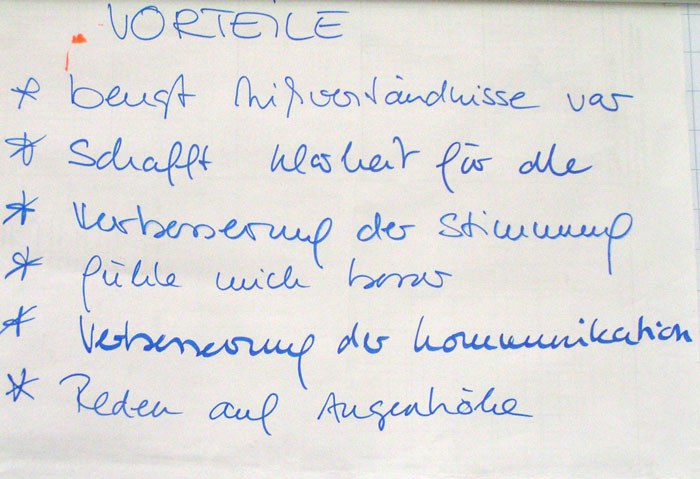 VORTEILE
* beugt Mißverständnisse vor
* Schafft Klarheit für alle
* Verbesserung der Stimmung
* fühle mich besser
* Verbesserung der Kommunikation
* Reden auf Augenhöhe